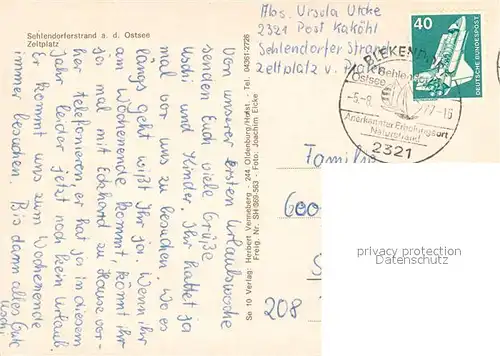 Sehlendorferstrand a. d. Ostsee
Zeltplatz
Von unserer ersten Urlaubswoche
senden Euch viele Grüße
Uschi und Kinder. Ihr hattet ja
mal vor uns zu besuchen. Wo es
längs geht wißt Ihr ja. Wenn ihr
am Wochenende kommt, könnt ihr
ja mal mit Eckhard zu Hause vor-
her telefonieren, er hat ja in diesem
Jahr leider jetzt noch kein Urlaub.
Er kommt uns zum Wochenende
besuchen. Bis dann alles Gute
Uschi
Se 10 Verlag: Herbert Venneberg - 244 Oldenburg/Holst. - Tel. 04361-2726
Freig. Nr. SH 869-563 - Foto: Joachim Eicke
Abs. Ursula Utcke
2321 Post Kaköhl
Sehlendorfer Strand
Zeltplatz v. Platen
40
DEUTSCHE BUNDESPOST
BLEKEN
Sehlendorf
Ostsee
-5.-8. 77-16
Anerkannter Erholungsort
Naturstrand
2321
Familie
Geo
208
privacy protection
VERMERK